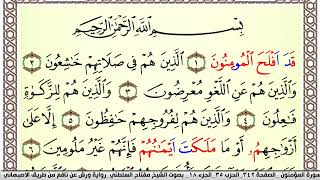 بِسْمِ اللَّهِ الرَّحْمَٰنِ الرَّحِيمِ
قَدَ اَفْلَحَ الْمُومِنُونَ ١ الَّذِينَ هُمْ فِي صَلَاتِهِمْ خَٰشِعُونَ ٢
وَالَّذِينَ هُمْ عَنِ اللَّغْوِ مُعْرِضُونَ ٣ وَالَّذِينَ هُمْ لِلزَّكَوٰةِ
فَٰعِلُونَ ٤ وَالَّذِينَ هُمْ لِفُرُوجِهِمْ حَٰفِظُونَ ٥ إِلَّا عَلَىٰ
أَزْوَٰجِهِمُ أَوْ مَا مَلَكَتَ اَيْمَٰنُهُمْ فَإِنَّهُمْ غَيْرُ مَلُومِينَ ٦
سورة المؤمنون . الصفحة ٣٤٢ الحزب ٣٥ الجزء ١٨ بصوت الشيخ مفتاح السلطني رواية ورش عن نافع من طريق الاصبهاني